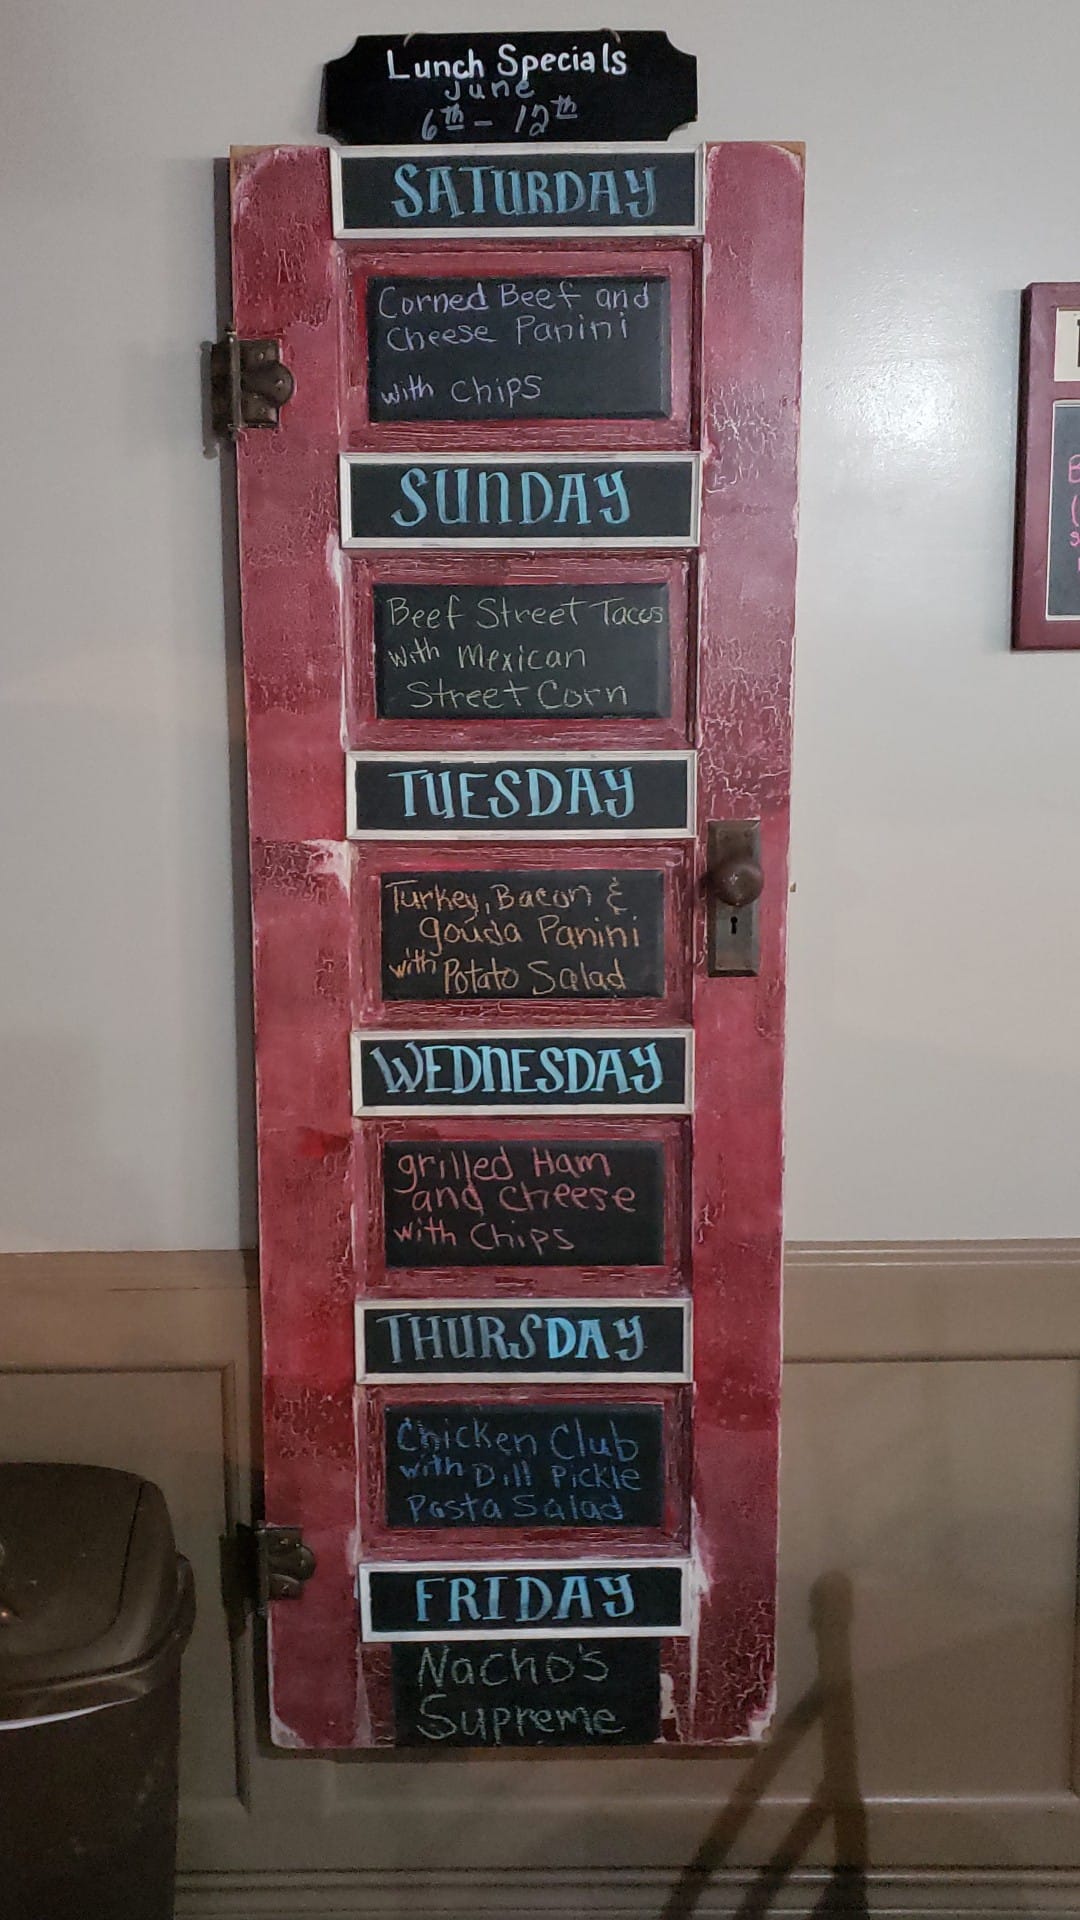 Lunch Specials
June
6th - 12th
SATURDAY
Corned Beef and
Cheese Panini
with Chips
SUNDAY
Beef Street Tacos
with Mexican
Street Corn
TUESDAY
Turkey, Bacon &
gouda Panini
with Potato Salad
WEDNESDAY
grilled Ham
and cheese
with Chips
THURSDAY
Chicken Club
with Dill Pickle
Pasta Salad
FRIDAY
Nacho's
Supreme